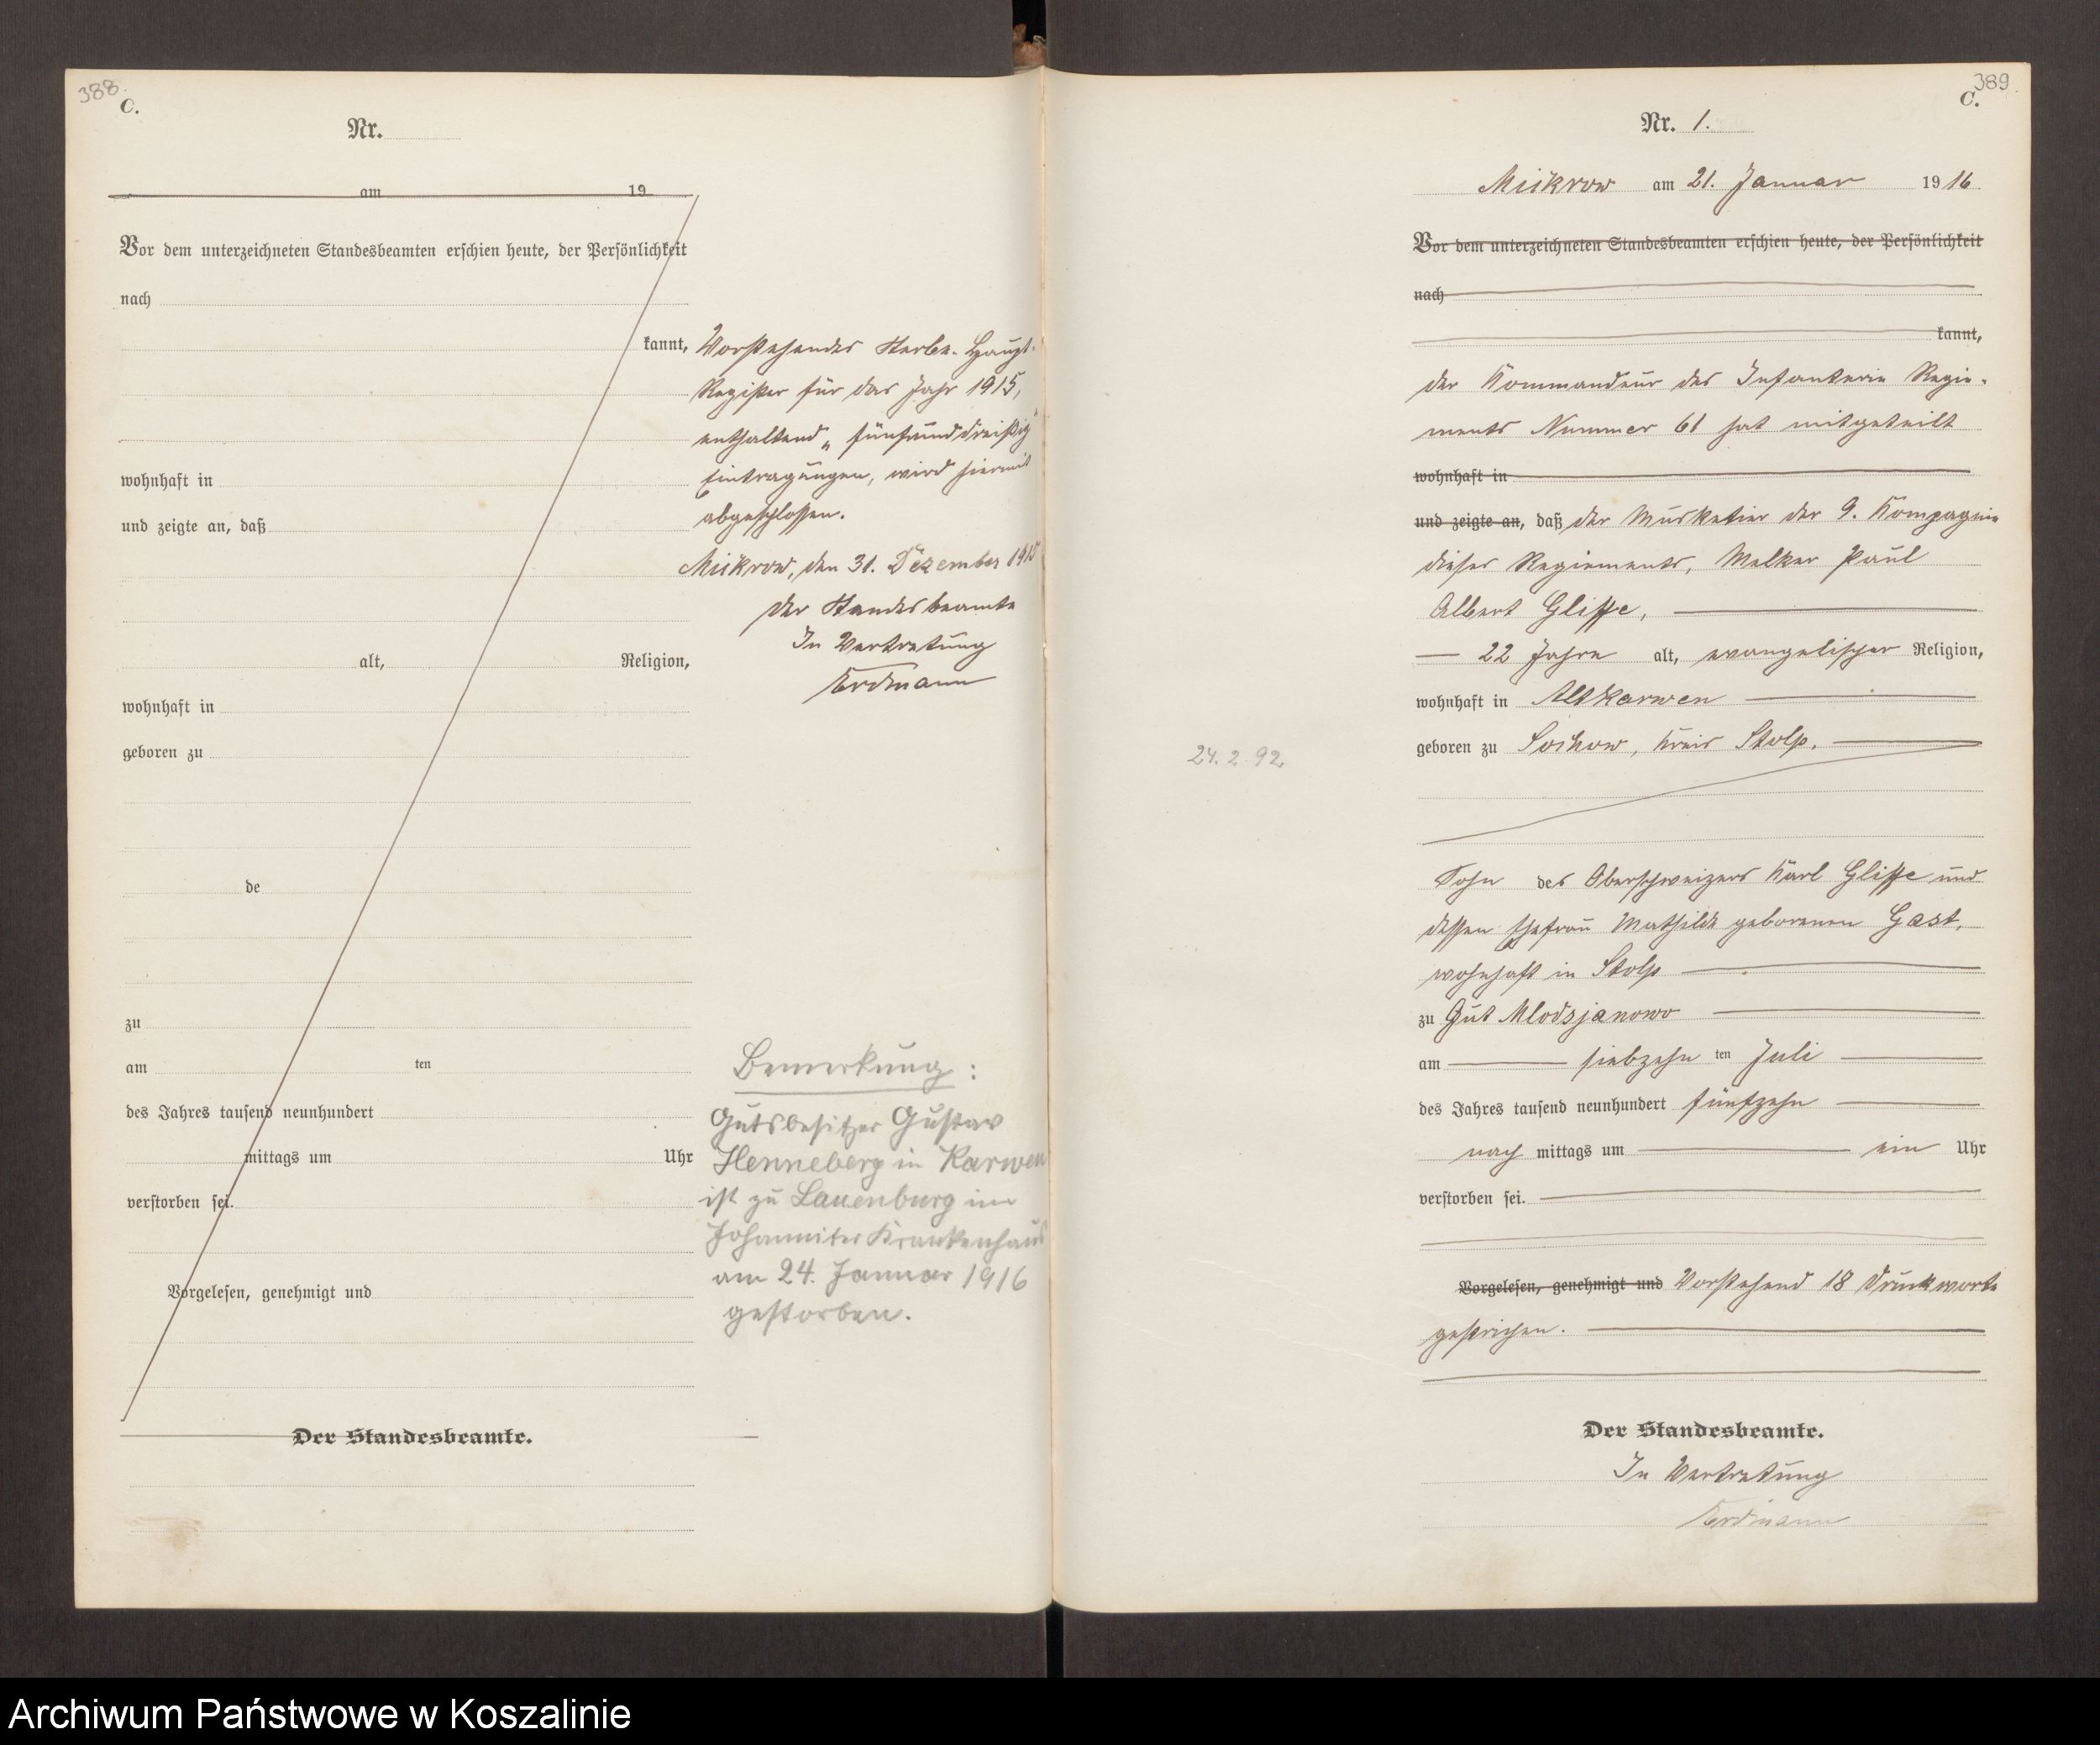 388.
C.
Nr.
am 19
Vor dem unterzeichneten Standesbeamten erschien heute, der Persönlichkeit
nach
kannt,
wohnhaft in
und zeigte an, daß
alt, Religion,
wohnhaft in
geboren zu
de
zu
am ten
des Jahres tausend neunhundert
mittags um Uhr
verstorben sei.
Vorgelesen, genehmigt und
Der Standesbeamte.
Vorstehendes Sterbe-Haupt-
Register für das Jahr 1915,
enthaltend „fünfunddreißig“
Eintragungen, wird hiermit
abgeschlossen.
Mickrow, den 31. Dezember 1915
Der Standesbeamte
In Vertretung
Erdmann
Bemerkung:
Gutsbesitzer Gustav
Henneberg in Karwen
ist zu Lauenburg im
Johanniter Krankenhaus
am 24. Januar 1916
gestorben.
389
C.
Nr. 1.
Mickrow am 21. Januar 1916
Vor dem unterzeichneten Standesbeamten erschien heute, der Persönlichkeit
nach
kannt,
der Kommandeur des Infanterie Regie-
ments Nummer 61 hat mitgeteilt
wohnhaft in
und zeigte an, daß der Musketier der 9. Kompagnie
dieses Regiements, Melker Paul
Albert Glisse,
22 Jahre alt, evangelischer Religion,
wohnhaft in Altkarwen
geboren zu Sochow, Kreis Stolp.
24.2.92
Sohn des Oberschweizers Karl Glisse und
dessen Ehefrau Mathilde geborenen Gast,
wohnhaft in Stolp
zu Gut Mlodsjanowo
am siebzehn ten Juli
des Jahres tausend neunhundert fünfzehn
nach mittags um ein Uhr
verstorben sei.
Vorgelesen, genehmigt und Vorstehend 18 Druckworte
gestrichen.
Der Standesbeamte.
In Vertretung
Erdmann
Archiwum Państwowe w Koszalinie